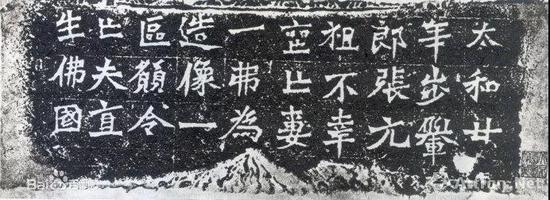 太和廿
年步轝
郎張元
祖不幸
喪亡妻
一弗為
造像一
區願令
亡夫直
生佛國
Bai百科
Artron.Net